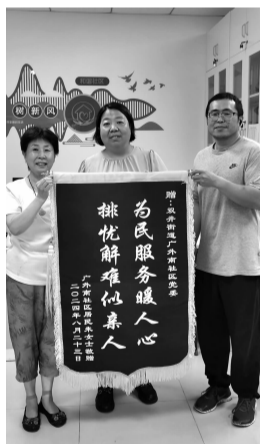 树新风
赠：双井街道广外南社区党委
为民服务暖人心
排忧解难似亲人
广外南社区居民朱女士敬赠
二〇二四年八月二十三日